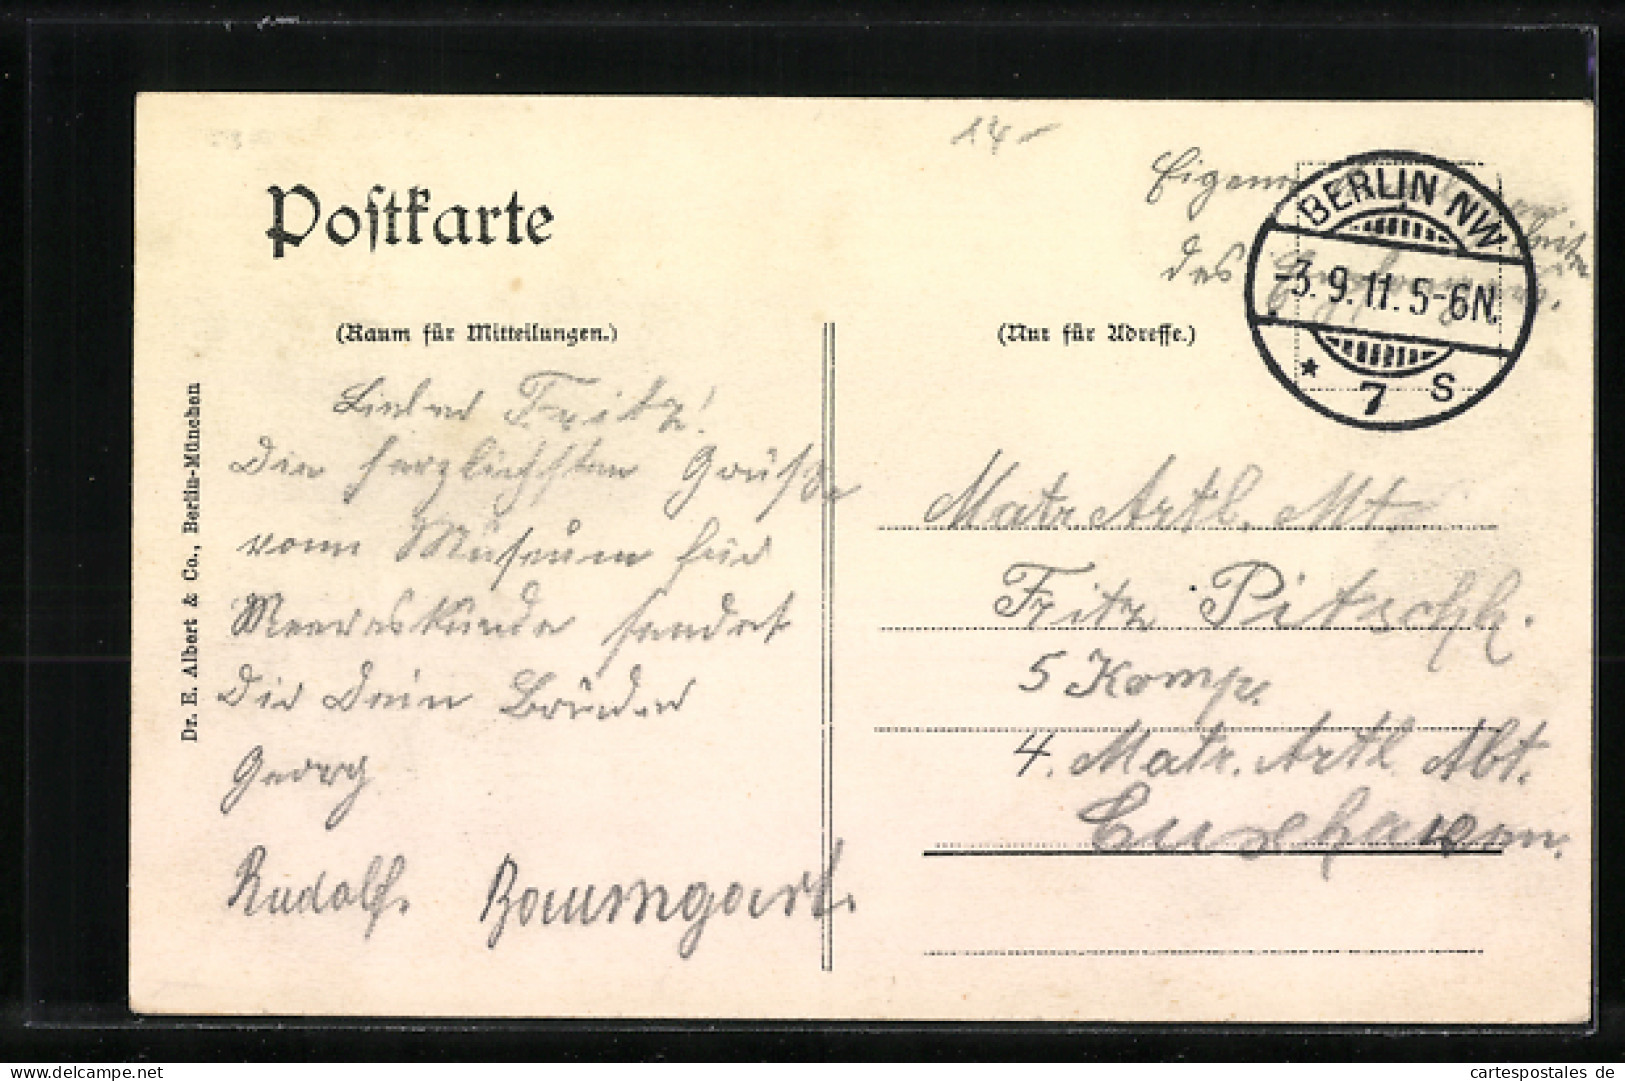 14-
Postkarte
Eigene Angelegenheit
des Empfängers.
BERLIN NW
-3.9.11.5-6N.
* 7 S
(Raum für Mitteilungen.)
(Nur für Adresse.)
Dr. E. Albert & Co., Berlin-München
Lieber Fritz!
Die herzlichsten Grüße
vom Museum für
Meereskunde sendet
Dir Dein Bruder
Georg
Rudolf. Baumgart.
Matr. Artl. Mt.
Fritz Pitschk.
5 Komp.
4. Matr. Artl. Abt.
Cuxhaven.
cartespostales de
https://www.delcampe.net/de/sammlerobjekte/store/cartes-postales